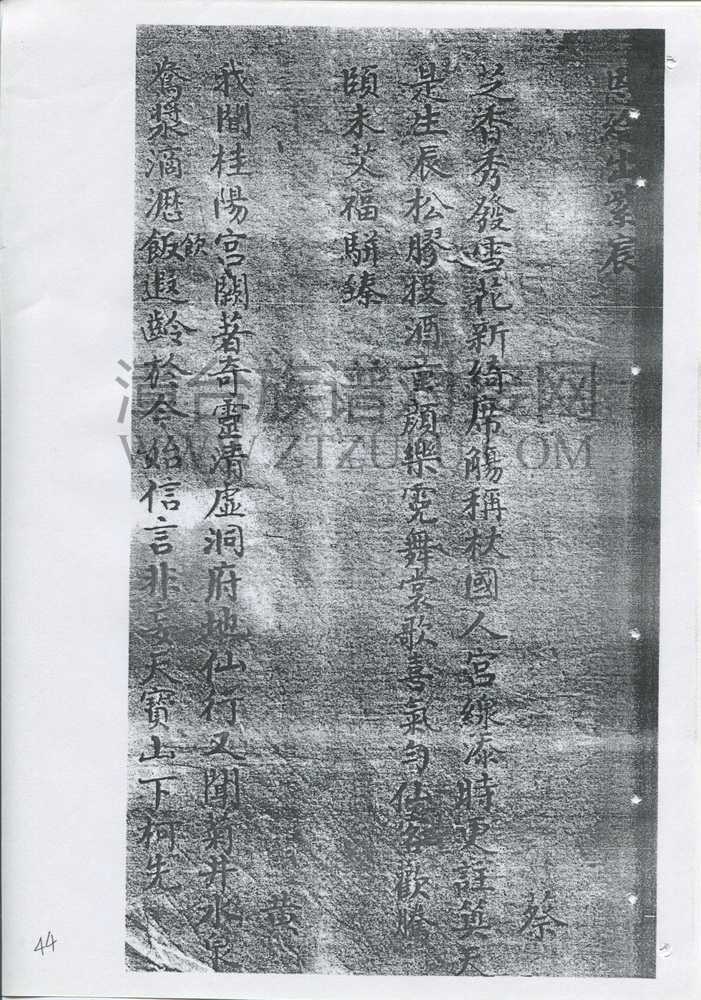 恩命出紫宸
蔡
芝香秀發雪花新綺席觴稱杖國人宮線添時更註算天
是生辰松膠核酒童顏樂霓舞裳歌喜氣勻仙客歡騰
頤未艾福駢臻
黃
我聞桂陽宮闕著奇靈清虛洞府地仙行又聞菊井水泉
飲
為漿滴瀝飯遐齡於今始信言非妄天寶山下柯先
WWW.ZTZUPU.COM
44